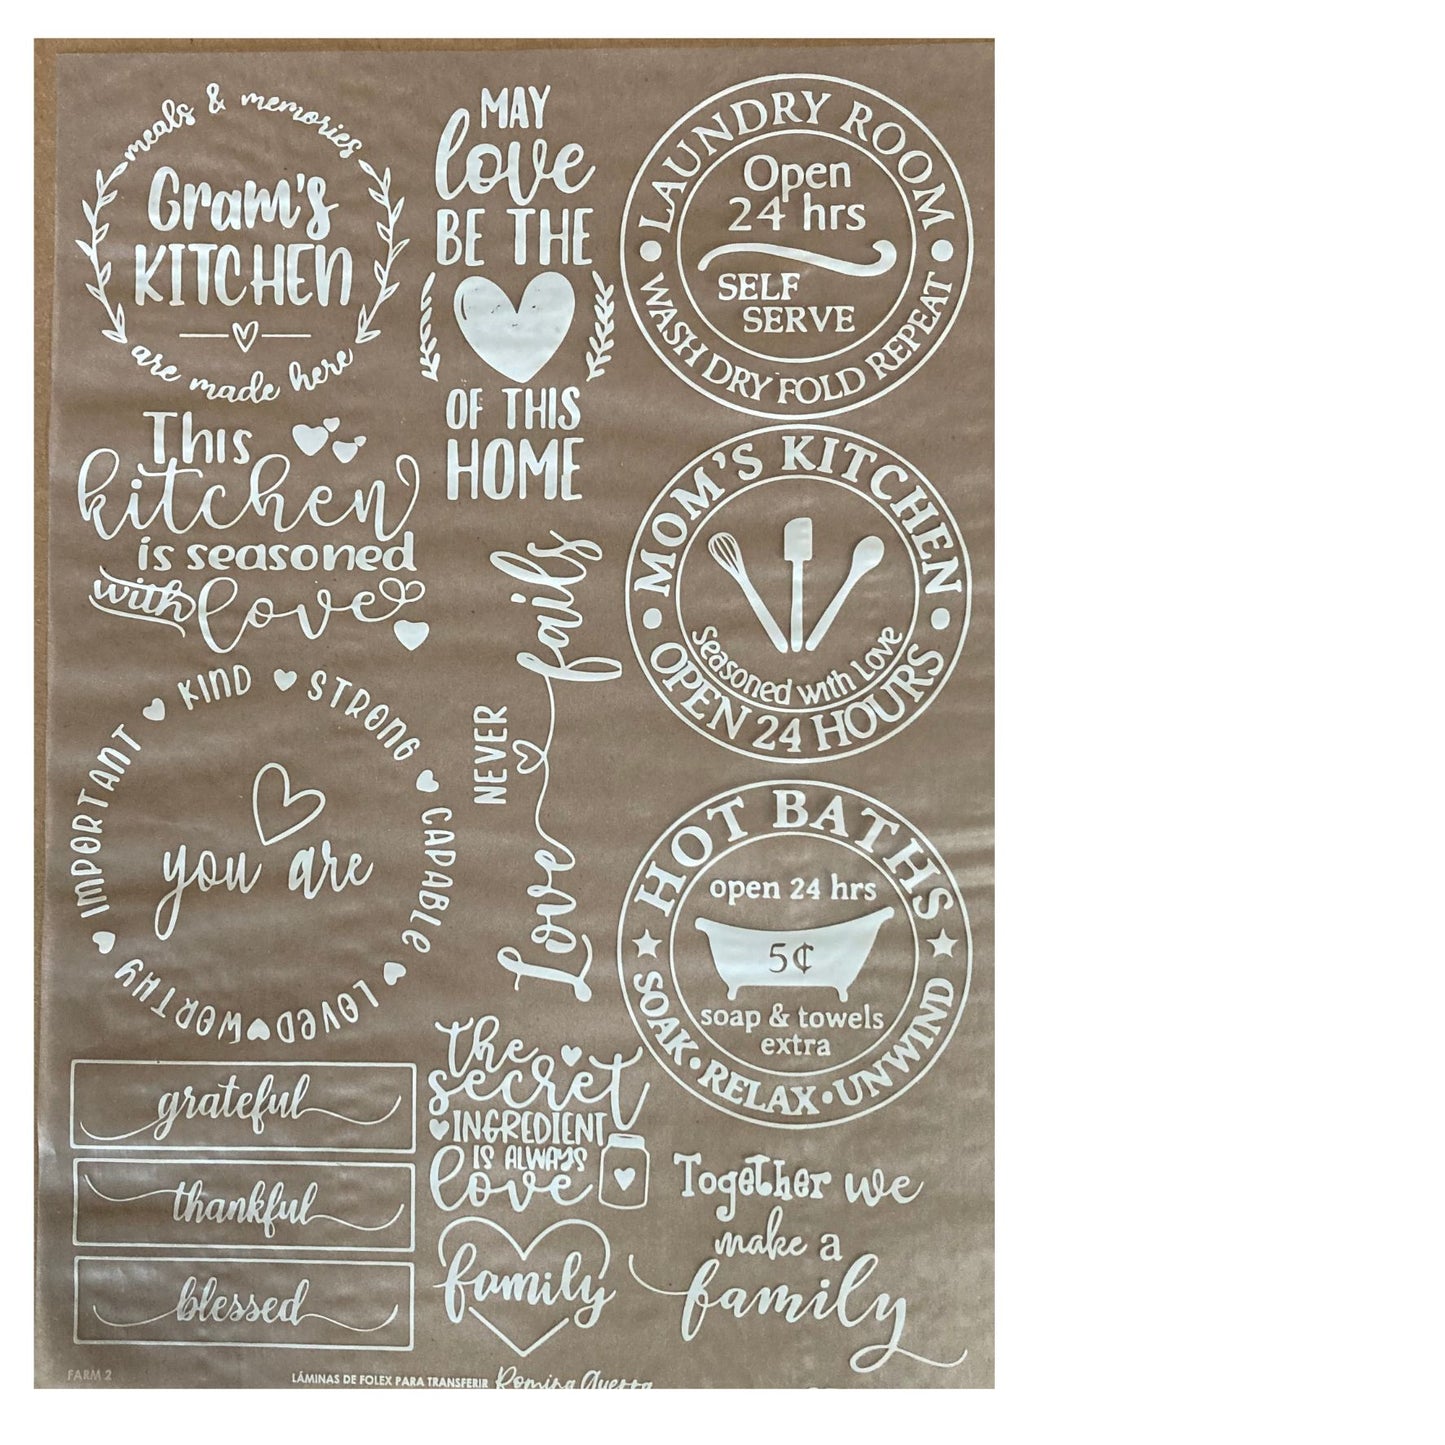 meals & memories
Gram's
KITCHEN
are made here
MAY
love
BE THE
OF THIS
HOME
LAUNDRY ROOM
Open
24 hrs
SELF
SERVE
WASH DRY FOLD REPEAT
This
kitchen
is seasoned
with love
Love NEVER fails
MOM'S KITCHEN
Seasoned with Love
OPEN 24 HOURS
you are
KIND STRONG CAPABLE LOVED WORTHY IMPORTANT
HOT BATHS
open 24 hrs
5¢
soap & towels
extra
SOAK • RELAX • UNWIND
grateful
thankful
blessed
the
secret
INGREDIENT
IS ALWAYS
love
family
Together we
make a
family
FARM 2
LÁMINAS DE FOLEX PARA TRANSFERIR Romina Guerra